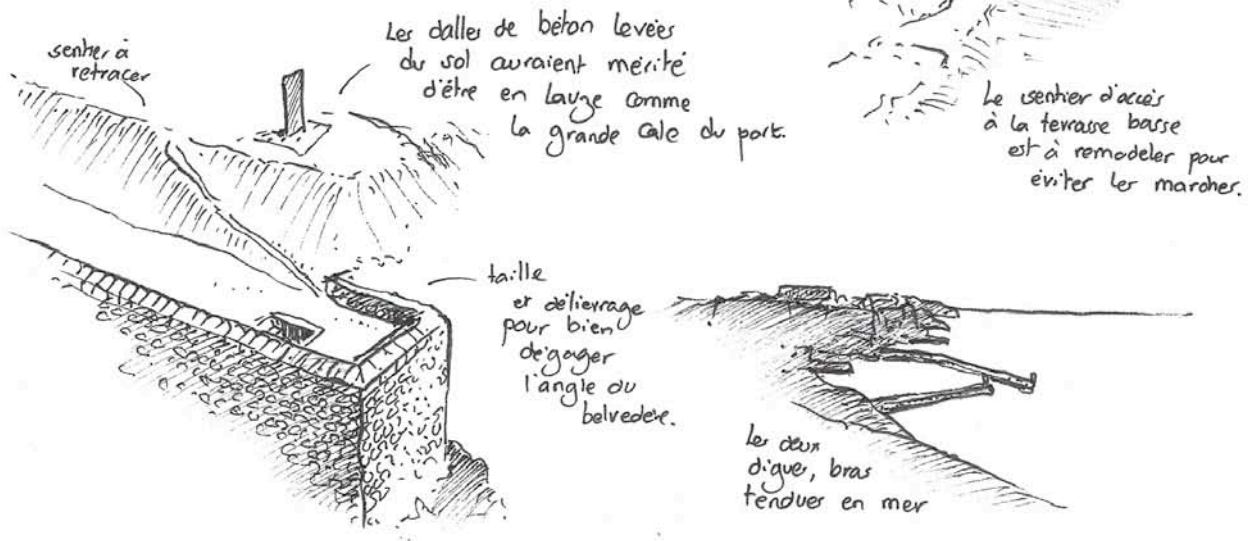 sentier à
retracer
Les dalles de béton levées
du sol auraient mérité
d'être en lauze comme
la grande cale du port.
Le sentier d'accès
à la terrasse basse
est à remodeler pour
éviter les marches.
taille
et délierrage
pour bien
dégager
l'angle du
belvédère.
Les deux
digues, bras
tendues en mer